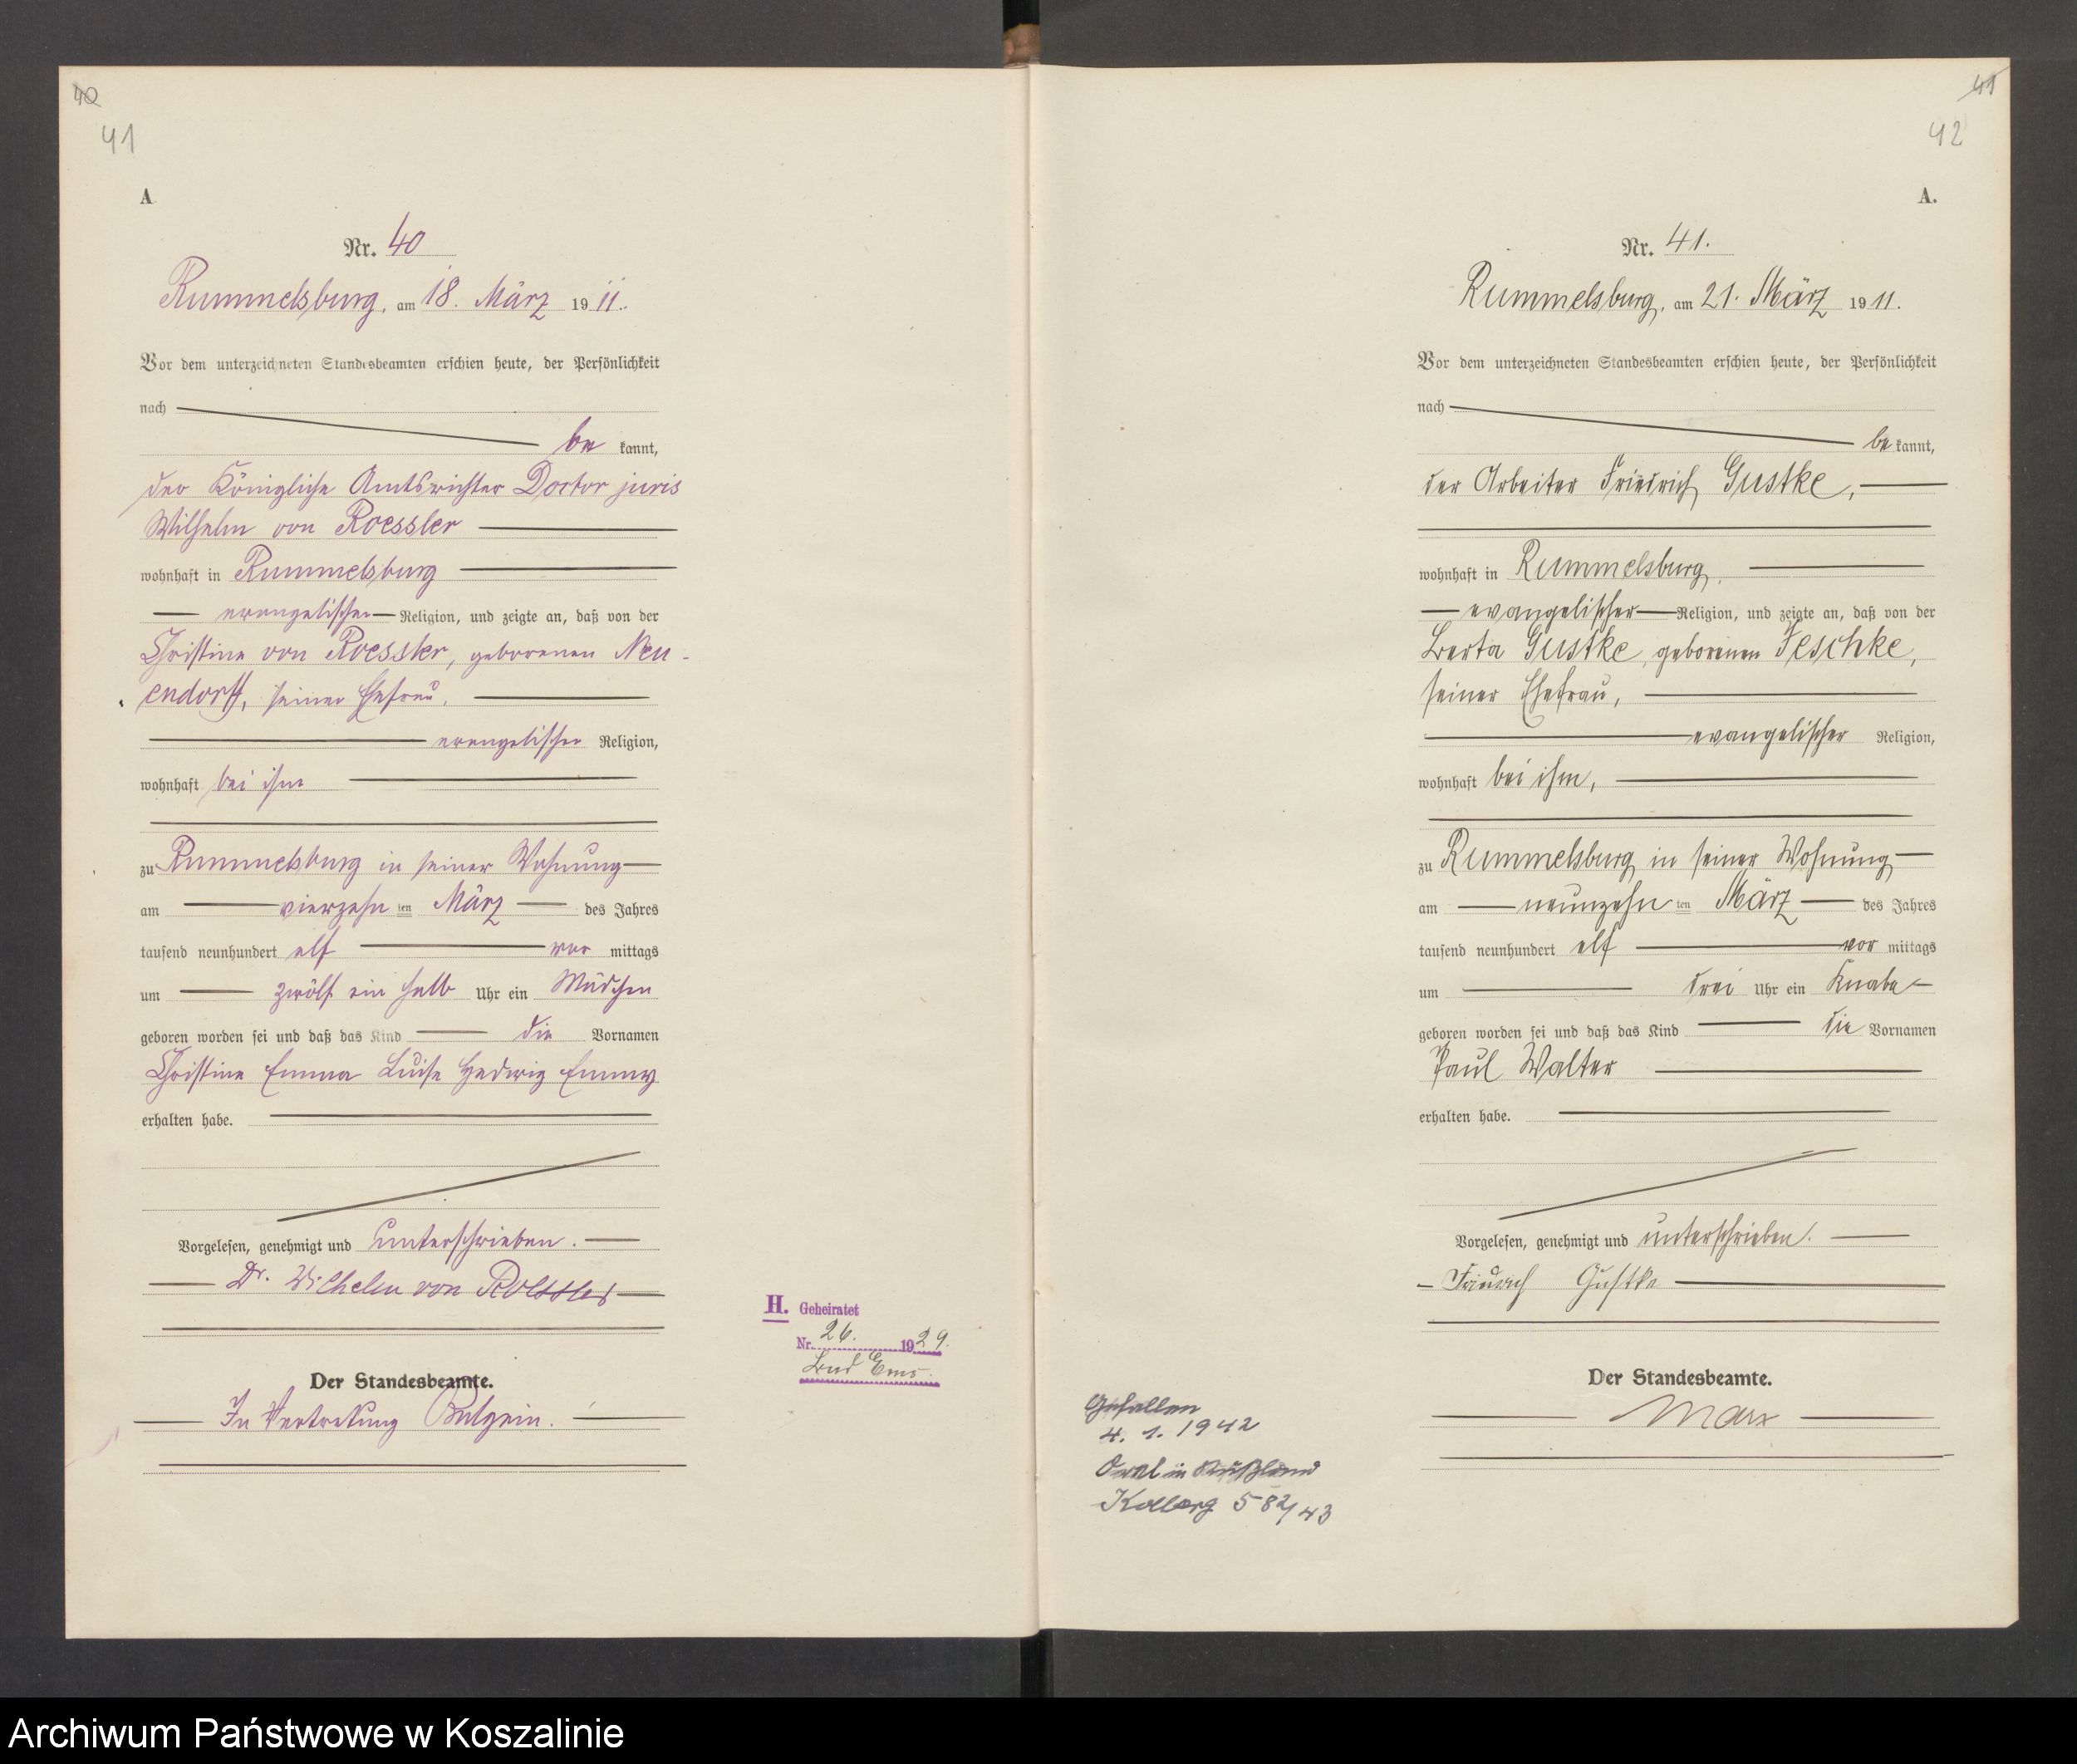 40
41
A
Nr. 40
Rummelsburg, am 18. März 1911.
Vor dem unterzeichneten Standesbeamten erschien heute, der Persönlichkeit
nach
be kannt,
der Königliche Amtsrichter Doctor juris
Wilhelm von Roessler
wohnhaft in Rummelsburg
evangelischer Religion, und zeigte an, daß von der
Christine von Roessler, geborenen Neu-
endorff, seiner Ehefrau,
evangelischer Religion,
wohnhaft bei ihm
zu Rummelsburg in seiner Wohnung
am vierzehn ten März des Jahres
tausend neunhundert elf vor mittags
um zwölf ein halb Uhr ein Mädchen
geboren worden sei und daß das Kind die Vornamen
Christine Emma Luise Hedwig Emmy
erhalten habe.
Vorgelesen, genehmigt und unterschrieben.
Dr. Wilhelm von Roessler
Der Standesbeamte.
In Vertretung
H. Geheiratet
Nr. 26. 1929.
Bad Ems.
41
42
A.
Nr. 41.
Rummelsburg, am 21. März 1911.
Vor dem unterzeichneten Standesbeamten erschien heute, der Persönlichkeit
nach
be kannt,
der Arbeiter Friedrich Gustke,
wohnhaft in Rummelsburg,
evangelischer Religion, und zeigte an, daß von der
Berta Gustke, geborenen Jeschke,
seiner Ehefrau,
evangelischer Religion,
wohnhaft bei ihm,
zu Rummelsburg in seiner Wohnung
am neunzehn ten März des Jahres
tausend neunhundert elf vor mittags
um drei Uhr ein Knabe
geboren worden sei und daß das Kind die Vornamen
Paul Walter
erhalten habe.
Vorgelesen, genehmigt und unterschrieben.
Friedrich Gustke
Der Standesbeamte.
Marx
Gefallen
4. 1. 1942
in Rußland
Kolberg 582/43
Archiwum Państwowe w Koszalinie